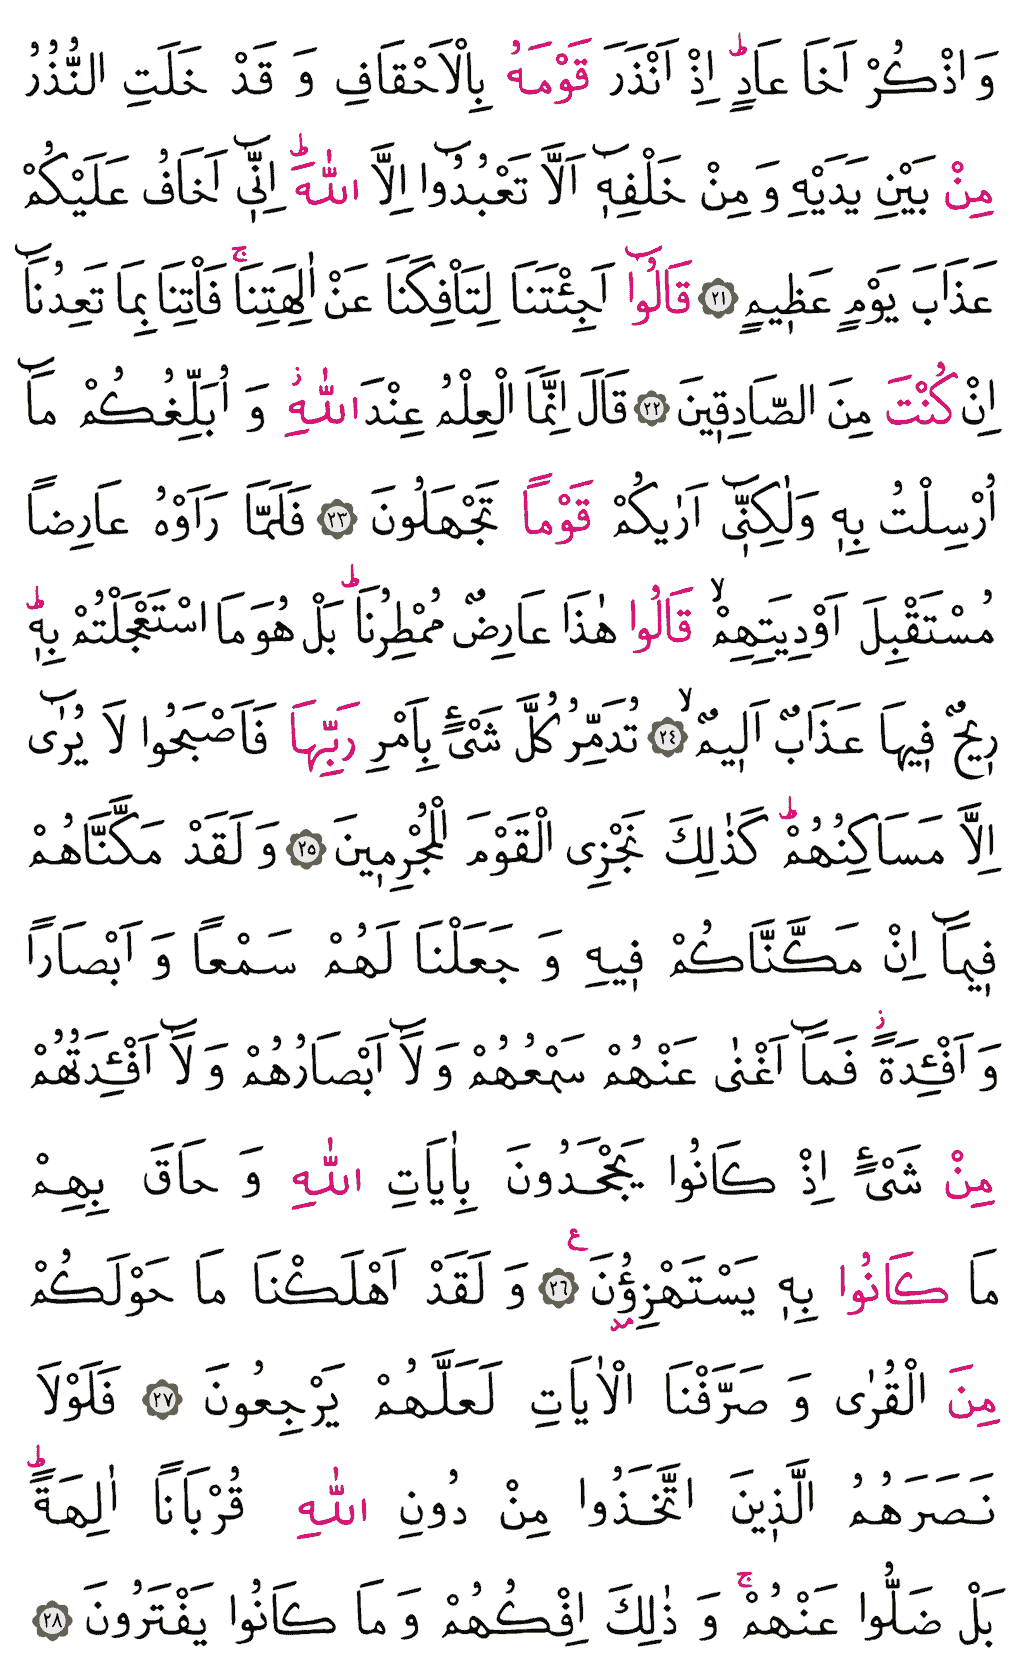 وَ اذْكُرْ اَخَا عَادٍ ؕ اِذْ اَنْذَرَ قَوْمَهُ بِالْاَحْقَافِ وَ قَدْ خَلَتِ النُّذُرُ
مِنْ بَيْنِ يَدَيْهِ وَ مِنْ خَلْفِهٖٓ اَلَّا تَعْبُدُٓوا اِلَّا اللّٰهَ ؕ اِنّٖٓي اَخَافُ عَلَيْكُمْ
عَذَابَ يَوْمٍ عَظٖيمٍ ﴿٢١﴾ قَالُٓوا اَجِئْتَنَا لِتَاْفِكَنَا عَنْ اٰلِهَتِنَا ۚ فَاْتِنَا بِمَا تَعِدُنَٓا
اِنْ كُنْتَ مِنَ الصَّادِقٖينَ ﴿٢٢﴾ قَالَ اِنَّمَا الْعِلْمُ عِنْدَ اللّٰهِ ؗ وَ اُبَلِّغُكُمْ مَٓا
اُرْسِلْتُ بِهٖ وَلٰكِنّٖٓى اَرٰيكُمْ قَوْمًا تَجْهَلُونَ ﴿٢٣﴾ فَلَمَّا رَاَوْهُ عَارِضًا
مُسْتَقْبِلَ اَوْدِيَتِهِمْ ۙ قَالُوا هٰذَا عَارِضٌ مُمْطِرُنَا ؕ بَلْ هُوَ مَا اسْتَعْجَلْتُمْ بِهٖ ؕ
رٖيحٌ فٖيهَا عَذَابٌ اَلٖيمٌ ۙ ﴿٢٤﴾ تُدَمِّرُ كُلَّ شَىْءٍ بِاَمْرِ رَبِّهَا فَاَصْبَحُوا لَا يُرٰٓى
اِلَّا مَسَاكِنُهُمْ ؕ كَذٰلِكَ نَجْزِى الْقَوْمَ الْمُجْرِمٖينَ ﴿٢٥﴾ وَ لَقَدْ مَكَّنَّاهُمْ
فٖيمَٓا اِنْ مَكَّنَّاكُمْ فٖيهِ وَ جَعَلْنَا لَهُمْ سَمْعًا وَ اَبْصَارًا
وَ اَفْئِدَةً ؗ فَمَٓا اَغْنٰى عَنْهُمْ سَمْعُهُمْ وَ لَٓا اَبْصَارُهُمْ وَ لَٓا اَفْئِدَتُهُمْ
مِنْ شَىْءٍ اِذْ كَانُوا يَجْحَدُونَ بِاٰيَاتِ اللّٰهِ وَ حَاقَ بِهِمْ
مَا كَانُوا بِهٖ يَسْتَهْزِؤُنَ ﴿٢٦﴾ ع مد وَ لَقَدْ اَهْلَكْنَا مَا حَوْلَكُمْ
مِنَ الْقُرٰى وَ صَرَّفْنَا الْاٰيَاتِ لَعَلَّهُمْ يَرْجِعُونَ ﴿٢٧﴾ فَلَوْلَا
نَصَرَهُمُ الَّذٖينَ اتَّخَذُوا مِنْ دُونِ اللّٰهِ قُرْبَانًا اٰلِهَةً ؕ
بَلْ ضَلُّوا عَنْهُمْ ۚ وَ ذٰلِكَ اِفْكُهُمْ وَ مَا كَانُوا يَفْتَرُونَ ﴿٢٨﴾